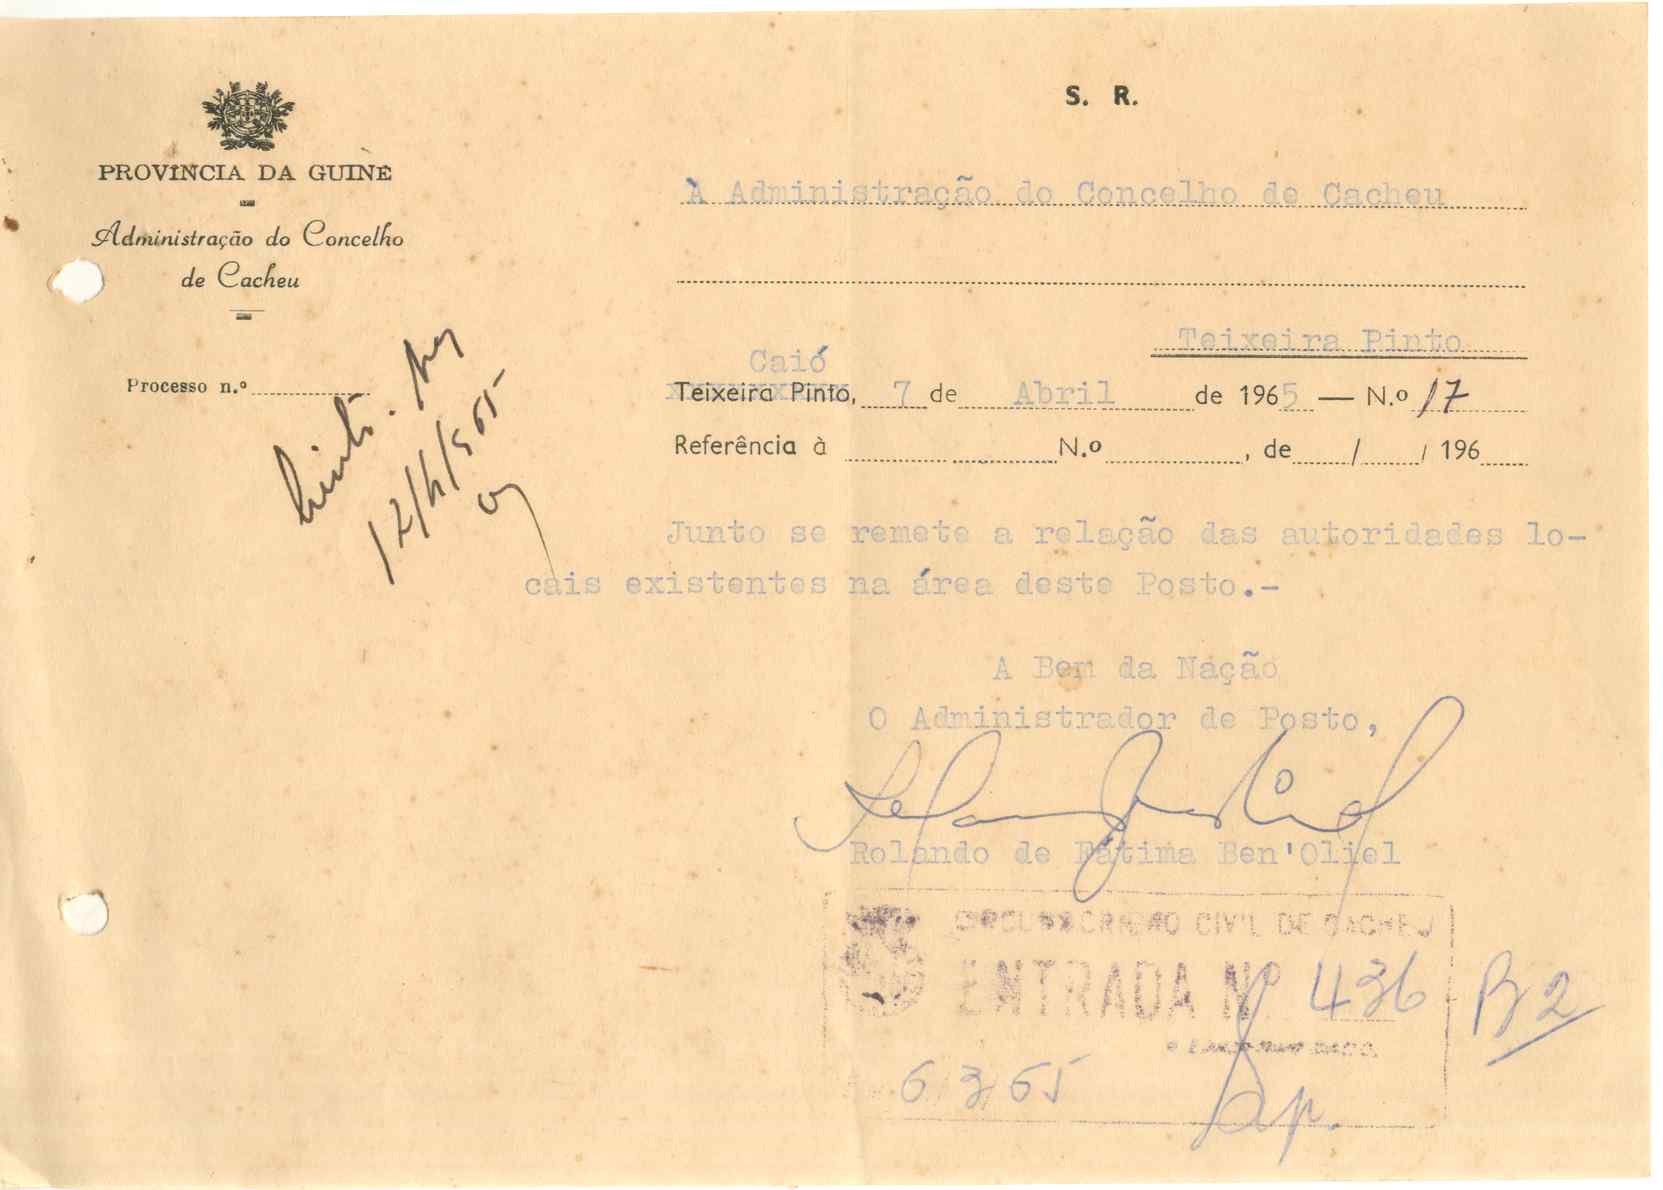 S. R.
PROVÍNCIA DA GUINÉ
Administração do Concelho
de Cacheu
Processo n.º
À Administração do Concelho de Cacheu
Teixeira Pinto
Caió
Teixeira Pinto, 7 de Abril de 1965 — N.º 17
Referência à N.º , de / / 196
12/4/965
Junto se remete a relação das autoridades lo-
cais existentes na área deste Posto.-
A Bem da Nação
O Administrador de Posto,
Rolando de Fátima Ben'Oliel
CIRCUNSCRIÇÃO CIVIL DE CACHEU
ENTRADA Nº 436
B2
6 3 65